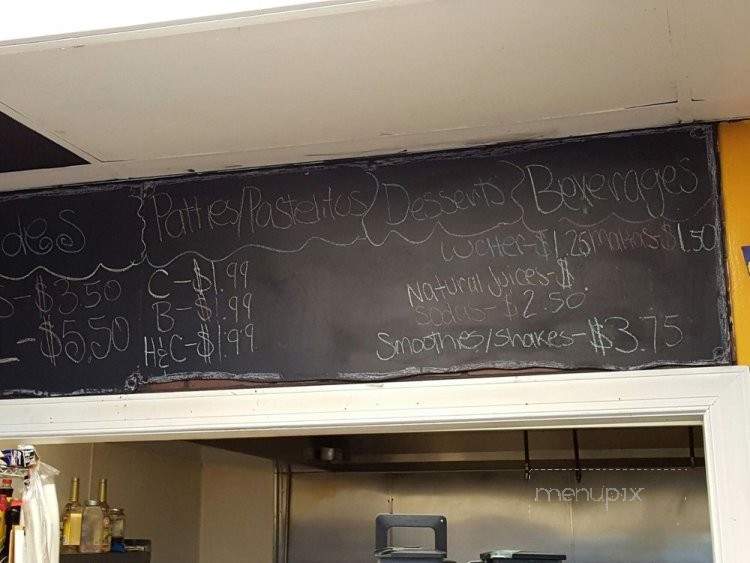 des
Patties/Pastelitos
Desserts
Beverages
S-$3.50
-$5.50
C-$1.99
B-$1.99
H&C-$1.99
Water-$1.25 maltas-$1.50
Natural Juices-$
Sodas-$2.50
Smoothies/shakes-$3.75
menupix